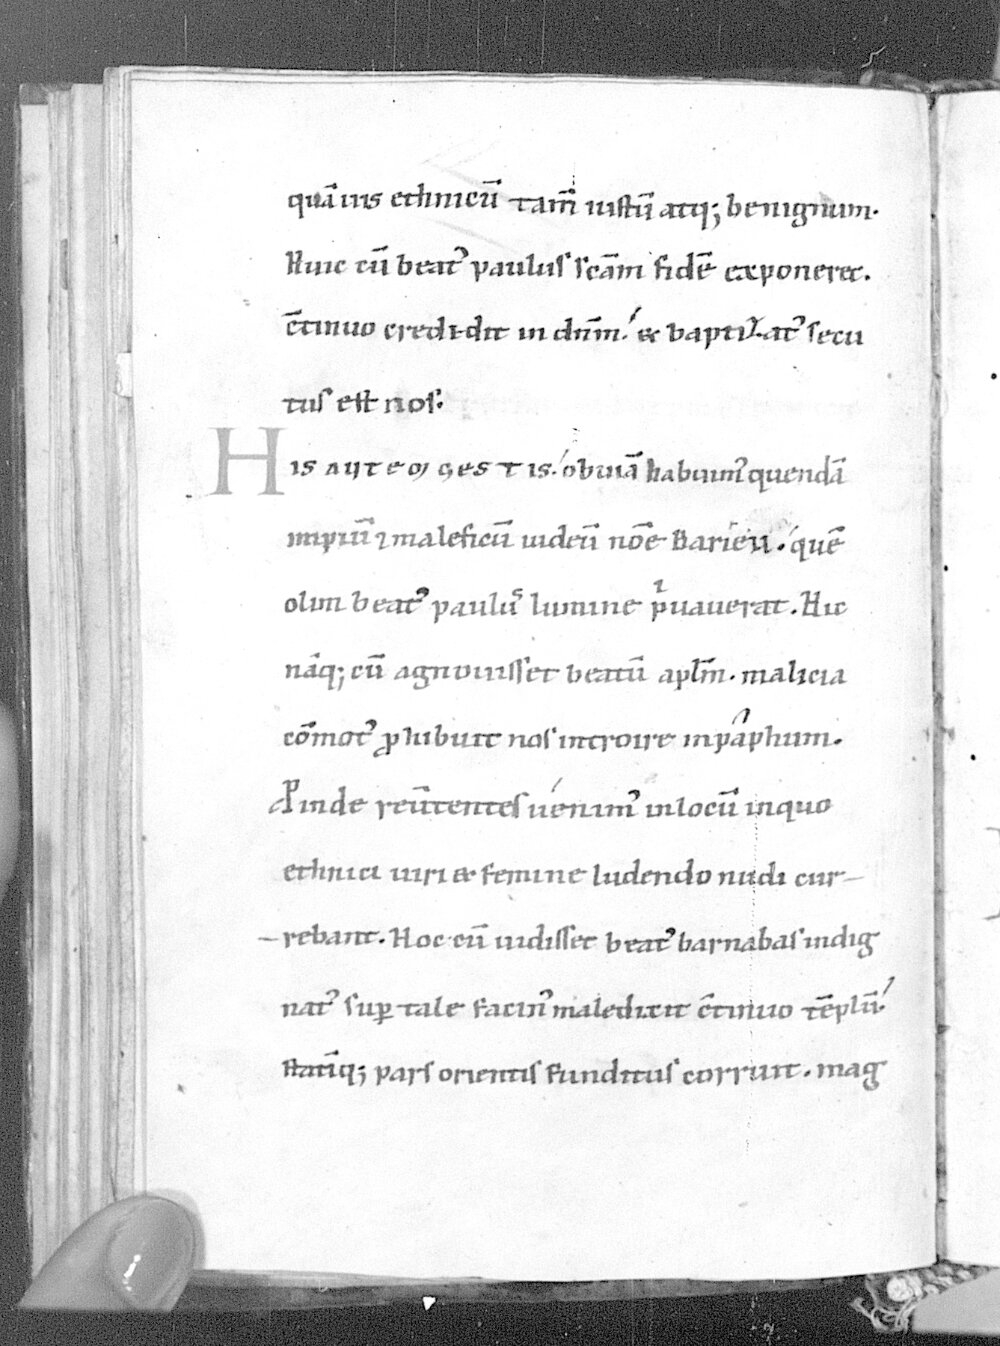 quāuis ethnicū tam̄ iustū atq; benignum.
Huic cū beat᾿ paulus scām fidē exponeret.
c̄tinuo credidit in dn̄m. & baptizat᾿ secu
tus est nos.
His autem gestis. obuiā habuim᾿ quendā
impiū ⁊ maleficū iudeū noē Barieu. quē
olim beat᾿ paulus lumine pͥuauerat. Hic
nāq; cū agnouisset beatū apl̄m. malicia
cōmot᾿ ꝓhibuit nos introire in paphum.
Proinde reūtentes uenim᾿ in locū in quo
ethnici uiri & femine ludendo nudi cur-
-rebant. Hoc cū uidisset beat᾿ barnabas indig
nat᾿ suꝑ tale facin᾿ maledixit c̄tinuo tēplū.
statīq; pars orientis funditus corruit. mag